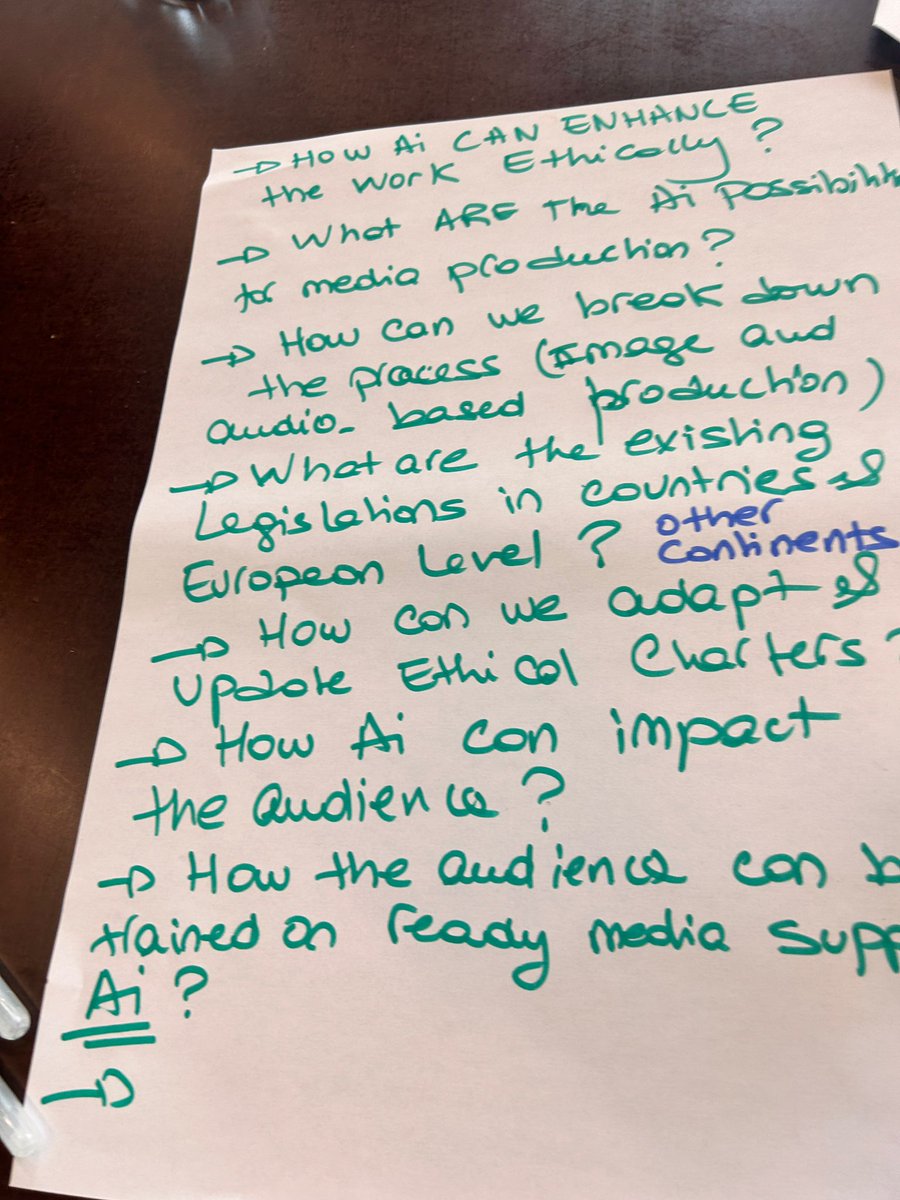 → HOW Ai CAN ENHANCE
the WORK Ethically?
→ What ARE The Ai Possibilit
for media production?
→ How can we break down
the process (Image and
audio- based production)
→ What are the existing
Legislations in countries &
European Level? other
continents
→ How can we adapt &
Update Ethical Charters?
→ How Ai can impact
the audience?
→ How the audience can b
trained on ready media supp
Ai?
→